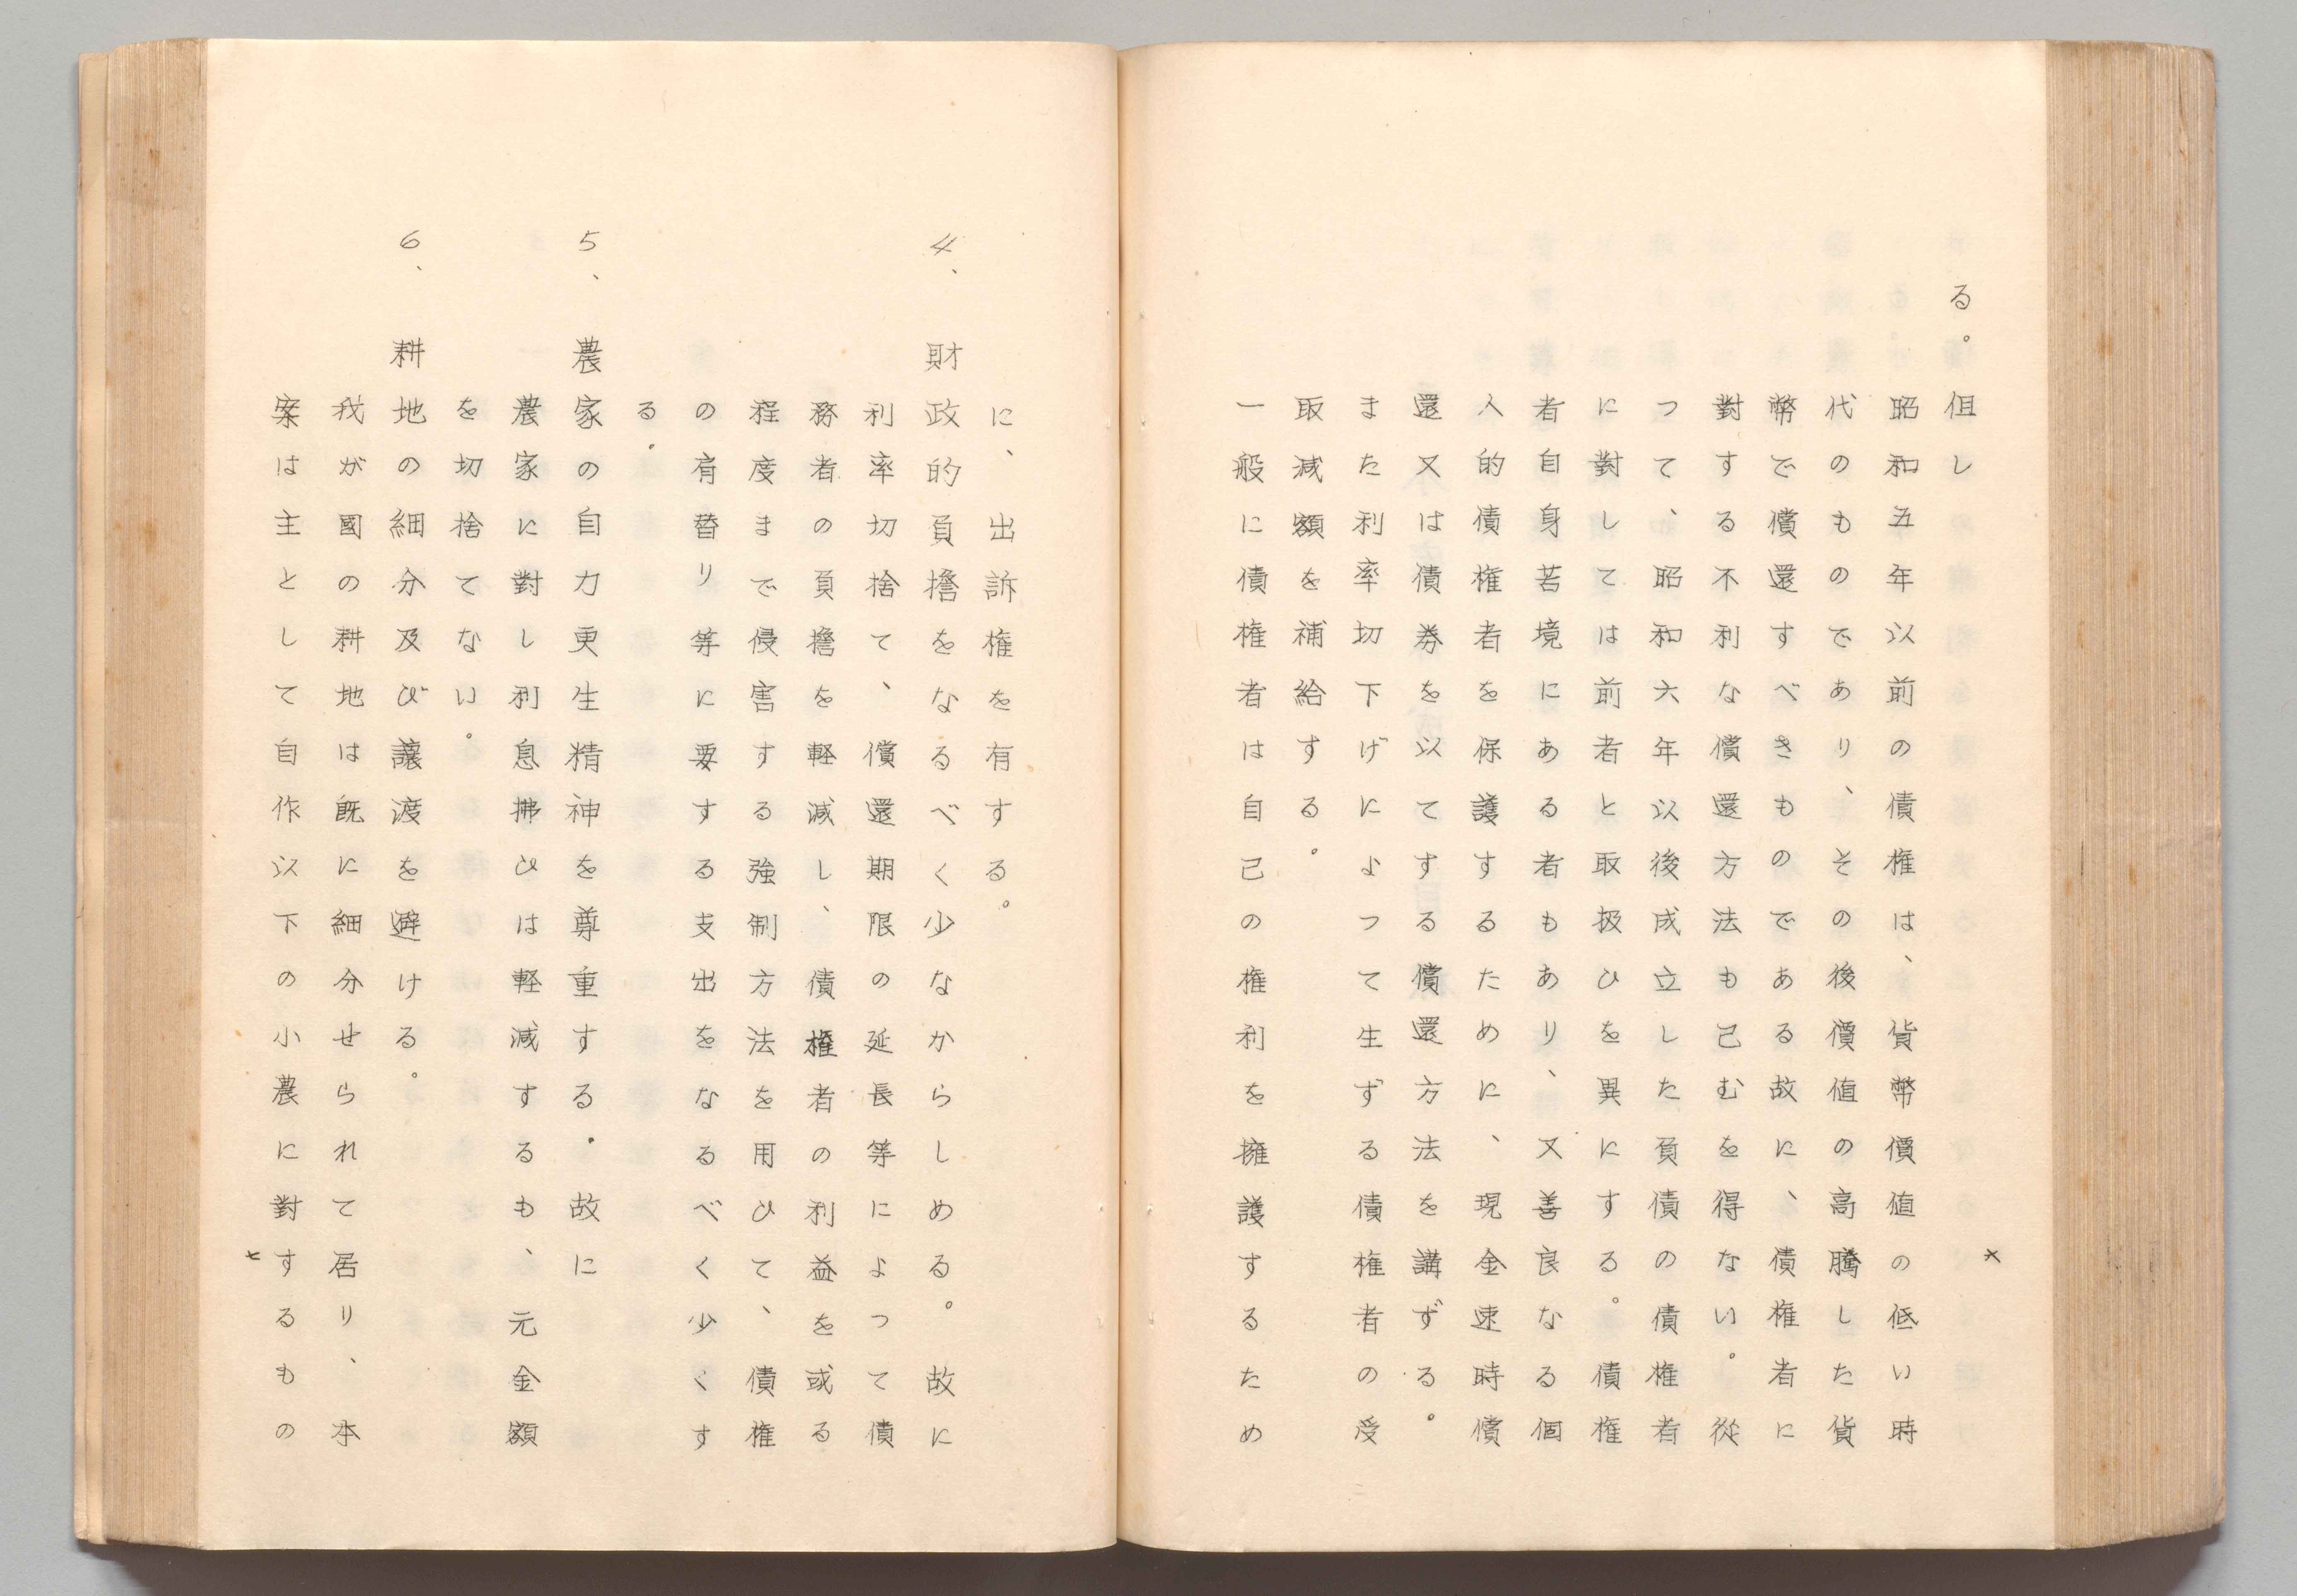 る。但し
昭和五年以前の債権は、貨幣價値の低い時
代のものであり、その後價値の高騰した貨
幣で償還すべきものである故に、債権者に
對する不利な償還方法も己むを得ない。從
つて、昭和六年以後成立した負債の債権者
に對しては前者と取扱ひを異にする。債権
者自身苦境にある者もあり、又善良なる個
人的債権者を保護するために、現金速時償
還又は債券を以てする償還方法を講ずる。
また利率切下げによつて生ずる債権者の受
取減額を補給する。
一般に債権者は自己の権利を擁護するため
六
に、出訴権を有する。
4、財政的負擔をなるべく少なからしめる。故に
利率切捨て、償還期限の延長等によつて債
務者の負擔を軽減し、債権者の利益を或る
程度まで侵害する強制方法を用ひて、債権
の肩替り等に要する支出をなるべく少くす
る。
5、農家の自力更生精神を尊重する。故に
農家に對し利息拂ひは軽減するも、元金額
を切捨てない。
6、耕地の細分及び讓渡を避ける。
我が國の耕地は既に細分せられて居り、本
案は主として自作以下の小農に對するもの
七